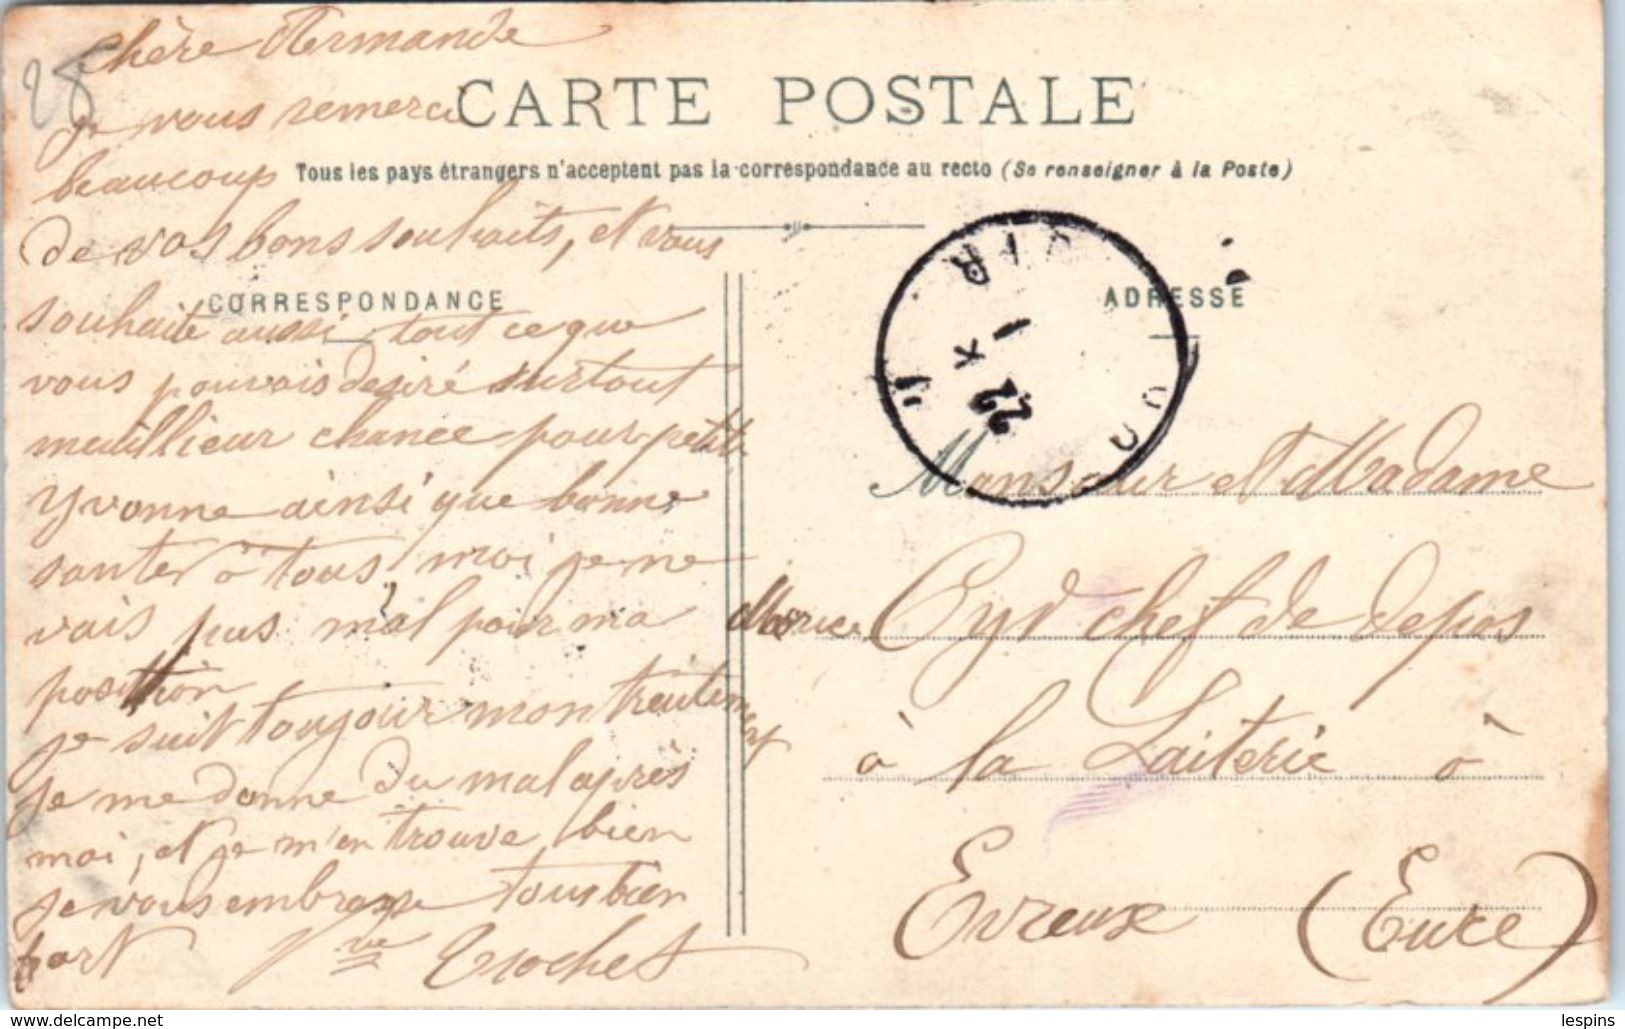 28
Chère Armande
CARTE POSTALE
je vous remerci
beaucoup
Tous les pays étrangers n'acceptent pas la correspondance au recto (Se renseigner à la Poste)
de vos bons souhaits, et vous
CORRESPONDANCE
souhaite aussi tout ce que
vous pouvois desiré surtout
meuillieur chance pour petite
Yvonne ainsi que bonne
santer à tous moi je ne
vais pas mal pour ma
position
je suit toujour mon traitement
je me donne du mal après
moi, et je m'en trouve bien
je vous embrasse tous bien
fort Vve Crochet
ADRESSE
22
Monsieur et Madame
Morice chef de depos
à la Laiterie à
Evreux (Eure)
lespins
www.delcampe.net